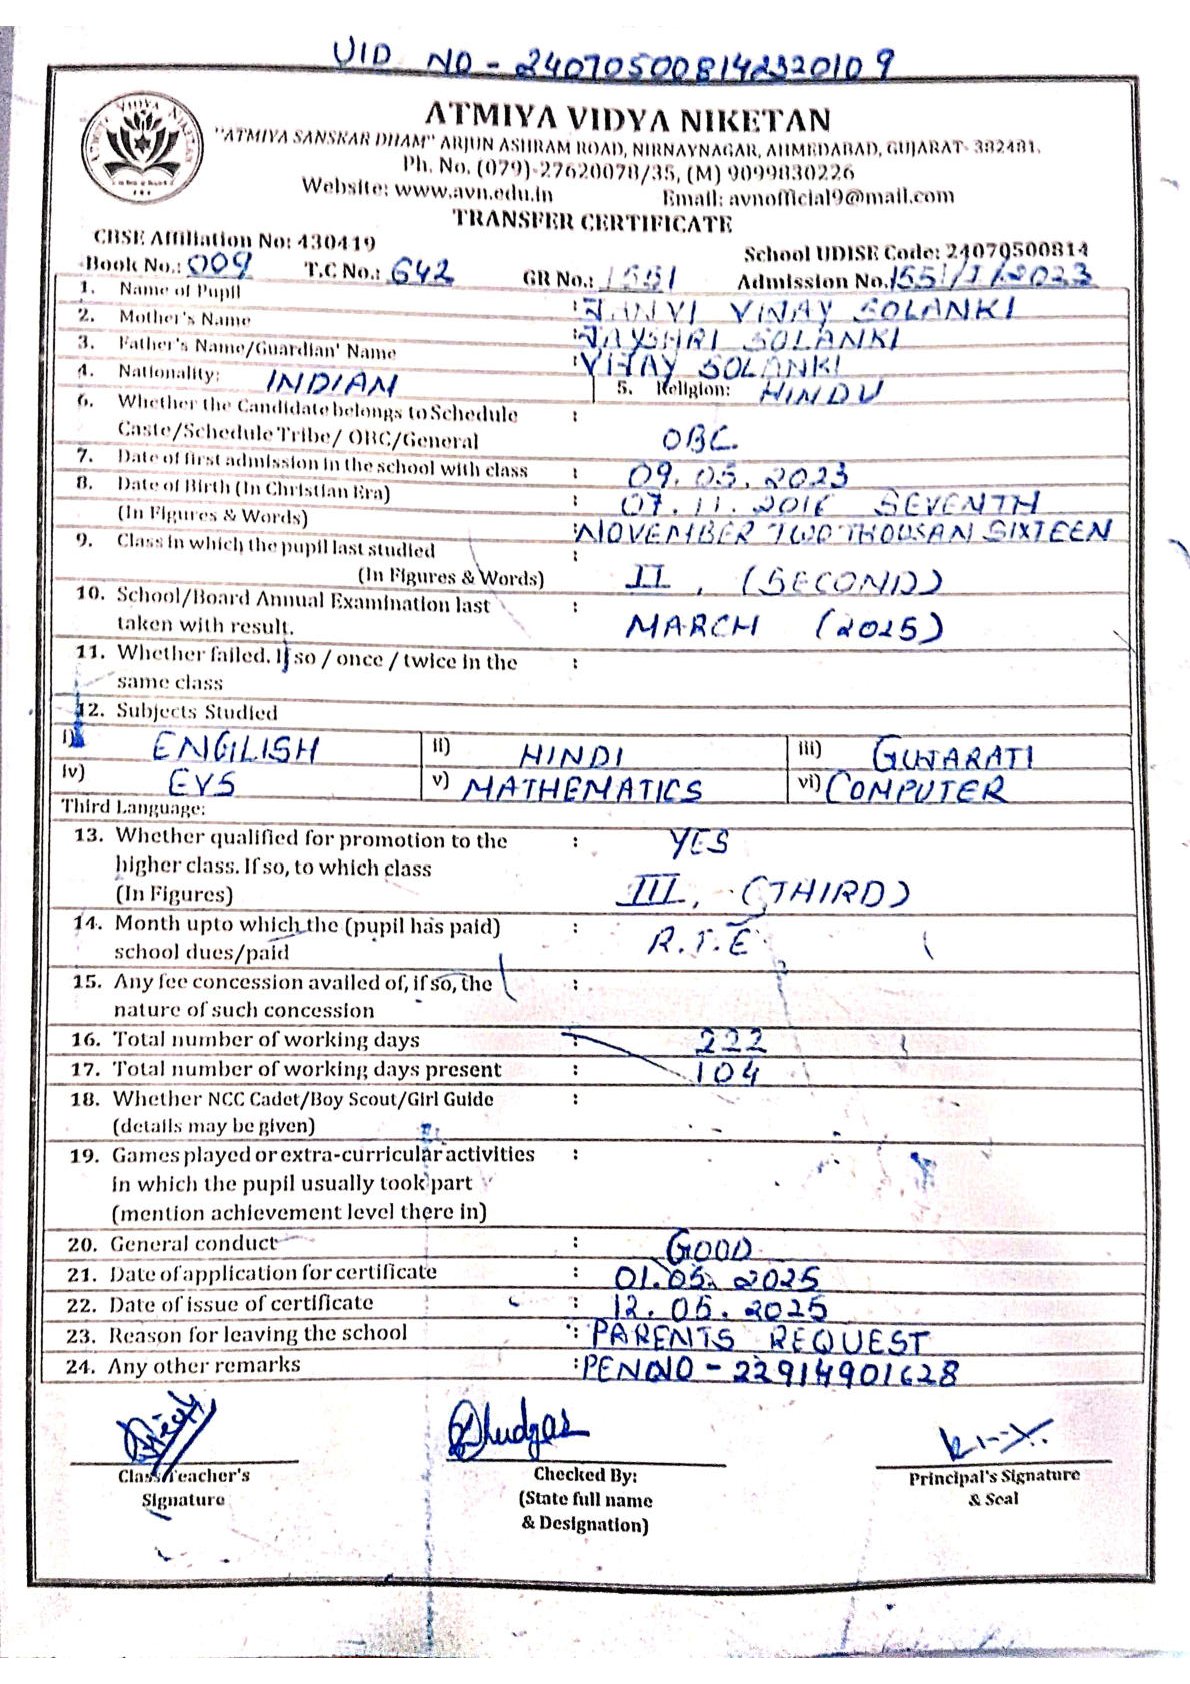 UID NO - 240705008142320109
ATMIYA VIDYA NIKETAN
"ATMIYA SANSKAR DHAM" ARJUN ASHRAM ROAD, NIRNAYNAGAR, AHMEDABAD, GUJARAT- 382481.
Ph. No. (079)-27620078/35, (M) 9099830226
Website: www.avn.edu.in Email: avnofficial9@mail.com
TRANSFER CERTIFICATE
CBSE Affiliation No: 430419 School UDISE Code: 24070500814
Book No.: 009 T.C No.: 642 GR No.: 1551 Admission No. 1551/I/2023
1. Name of Pupil : JANVI VIJAY SOLANKI
2. Mother's Name : JAYSHRI SOLANKI
3. Father's Name/Guardian' Name : VIJAY SOLANKI
4. Nationality: INDIAN 5. Religion: HINDU
6. Whether the Candidate belongs to Schedule :
Caste/Schedule Tribe/ OBC/General OBC
7. Date of first admission in the school with class : 09.05.2023
8. Date of Birth (In Christian Era) : 07.11.2016 SEVENTH
(In Figures & Words) : NOVEMBER TWO THOUSAN SIXTEEN
9. Class in which the pupil last studied :
(In Figures & Words) II, (SECOND)
10. School/Board Annual Examination last :
taken with result. MARCH (2025)
11. Whether failed. If so / once / twice in the :
same class
12. Subjects Studied
i) ENGILISH ii) HINDI iii) GUJARATI
iv) EVS v) MATHEMATICS vi) COMPUTER
Third Language:
13. Whether qualified for promotion to the : YES
higher class. If so, to which class
(In Figures) III, (THIRD)
14. Month upto which the (pupil has paid) : R.T.E
school dues/paid
15. Any fee concession availed of, if so, the :
nature of such concession
16. Total number of working days : 222
17. Total number of working days present : 104
18. Whether NCC Cadet/Boy Scout/Girl Guide :
(details may be given)
19. Games played or extra-curricular activities :
in which the pupil usually took part
(mention achievement level there in)
20. General conduct : GOOD
21. Date of application for certificate : 01.05.2025
22. Date of issue of certificate : 12.05.2025
23. Reason for leaving the school : PARENTS REQUEST
24. Any other remarks : PENNO - 22914901628
Class Teacher's Checked By: Principal's Signature
Signature (State full name & Seal
& Designation)